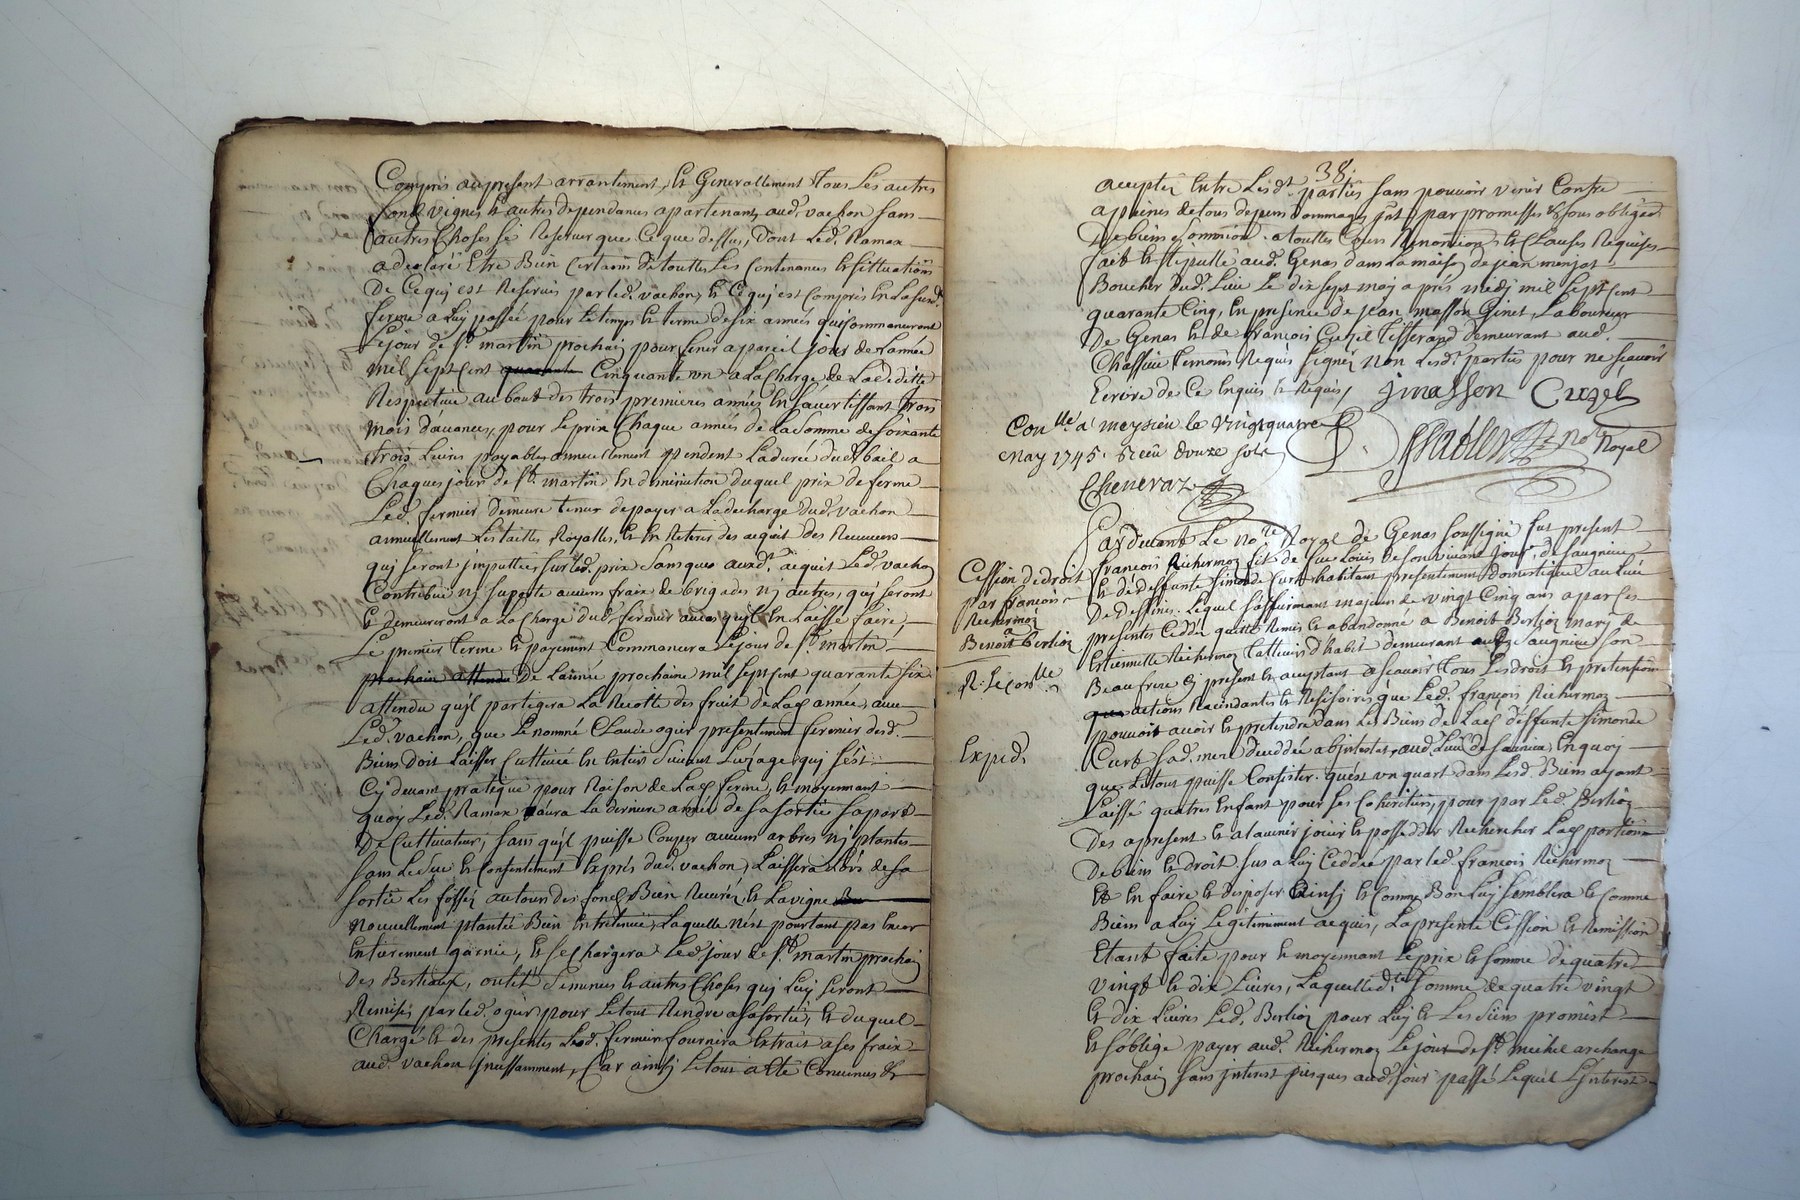 Compris au present arrantement, Et Generallement tous Les autres
fond vignes Et autres dependances apartenants aud. vachon sans
autres Choses se Reserver que Ce que dessus, Dont Led. Ramex
a declaré Etre Bien Certain de touttes Les Contenances Et sittuations
De Ce qui est Reservés par led. vachon, Et Ce qui est Compris En La susd.
ferme a Luy passée pour le temps Et terme de six années qui Commanceront
Le jour de St. martin prochain pour finir a pareil jour de L'année
mil sept Cent Cinquante un a La Charge de La deditte
Respective au bout des trois premieres années En s'avertissant trois
mois d'avances, pour Le prix Chaque années de La Somme de soixante
trois Livres payables annuellement pendent La durée dud. bail a
Chaques jours de St. martin En diminution duquel prix de ferme
Led. fermier demeure tenus de payer a La decharge dud. vachon
annuellement Les tailles Royalles, Et En Retirer des acquit des Receveurs
qui seront jmputtées sur led. prix sans que aud. acquit Led. vachon
Contribue ny suporte aucuns frais de brigades ny autres, qui seront
Et demeureront a La Charge dud. fermier qu'il En Laisse faire,
Le premier terme Et payement Commancera Le jour de St. martin
prochain attendu De L'année prochaine mil sept Cent quarante six
attendu qu'il partigera La Recolte des fruit de Lad. année, avec
Led. vachon, que Le nommé Claude ogier presentement fermier desd.
Biens doit Laisser Cultivé En Entier suivant L'uzage qui s'est
Cy devant pratiqué pour Raison de Lad. ferme, Et moyennant
quoy Led. Ramex aura La derniere année de sa sortie sa part
De Cultivateur, sans qu'il puisse Couper aucuns arbres ny plantes
sans Le sceu Et Consentement Exprés dud. vachon, Laissera Lors de sa
sortie Les fossés autour des fond Bien Recurés, Et La vigne
nouvellement plantée Bien Entretenüe, Laquelle n'est pourtant pas Encor
Entierement garnie, Et se Chargera Led. jour de St. martin prochain
Des Bestiaux, outils semences Et autres Choses qui Luy seront
Remises par led. ogier pour Le tout Rendre a sa sortie, Et duquel
Chargé Et des presentes Led. fermier fournira Extrait a ses frais
aud. vachon jncessamment, Car ainsy Le tout a Eté Convenus &
38.
accepté Entre Lesd. parties sans pouvoir venir Contre
a peines de tous depens dommages par promesses & sous obligãon
De biens soumission a touttes Cours Renonciõns Et Clauses Requises
fait Et stipullé aud. Genas dans La maison de jean menjat
Boucher dud. Lieu Le dix sept may aprés midy mil sept Cent
quarante Cinq, En presence de jean masson Ginet, Laboureur
De Genas Et de François Cuzel tisserand demeurant aud.
Chassieu temoins Requis signés Non Lesd. parties pour ne sçavoir
Ecrire de Ce Enquis Et Requis, jmasson Cuzel
Conllé a meyzieu le vingt quatre
may 1745. Receu douze sols no.re Royal
Cheneraz
Pardevant Le no.re Royal de Genas soussigné fut present
françois Richermoz fils de feu Louis de son vivant jour. de saugnieu
Et de deffunte simonde Curt habitant presentement domestique au Lieu
De Dessines. Lequel s'affirmant majeur de vingt Cinq ans a par Ces
presentes Ceddé quitté Remis Et abandonné a Benoit Berlioz mary de
Estiennette Richermoz tailleur d'habit demeurant saugnieu son
Beau frere Cy present Et acceptant a scavoir tous Les droit Et pretentions
actions Recindantes Et Resisoires que Led. françois Richermoz
pouvoit avoir Et pretendre dans Les Biens de Lad. deffunte simonde
Curt sad. mere decedée abintestat, aud. Lieu de saunieu, En quoy
que Le tout puisse Consister. qu'est un quart dans Lesd. Biens ayant
Laissé quatres Enfant pour ses Coheritiers, pour par Led. Berlioz
Des apresent Et a l'avenir jouir Et possedder Rechercher Lad. portion
De biens Et droit sus a Luy Ceddée par led. françois Richermoz
Et En faire Et disposer Ainsy Et Comme Bon Luy semblera Et Comme
Biens a Luy Legitimement acquis, La presente Cession Et Remission
Etant faite pour Et moyennant Le prix Et somme de quatre
vingt Et dix Livres, Laquelled. somme de quatre vingt
Et dix Livres Led. Berlioz pour Luy Et Les siens promet
Et s'oblige payer aud. Richermoz Le jour de St. michel archange
prochain sans jnterest jusques aud. jour passé Lequel L'jnterest
Cession de droit
par françois
Richermoz
Benoit Berlioz
R. Le Conlle
Exped.